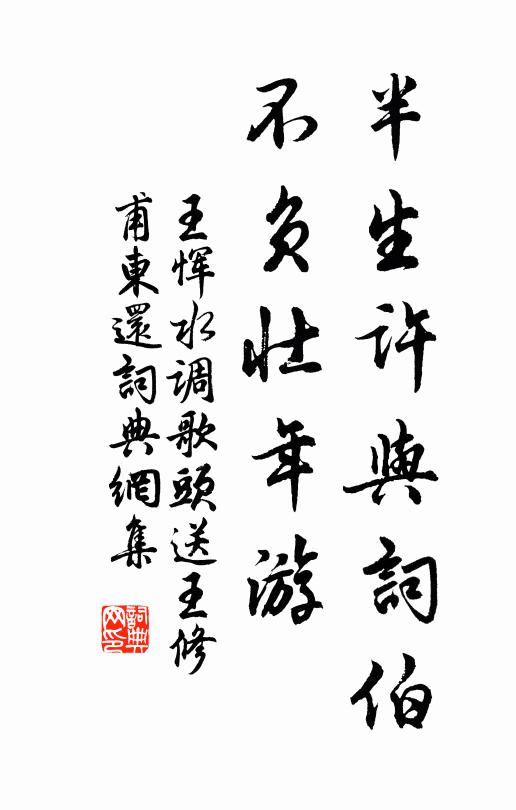 半生許與詞伯
不負壮年游
王惲水调歌頭送王修
甫東還詞典網集
詞典網印